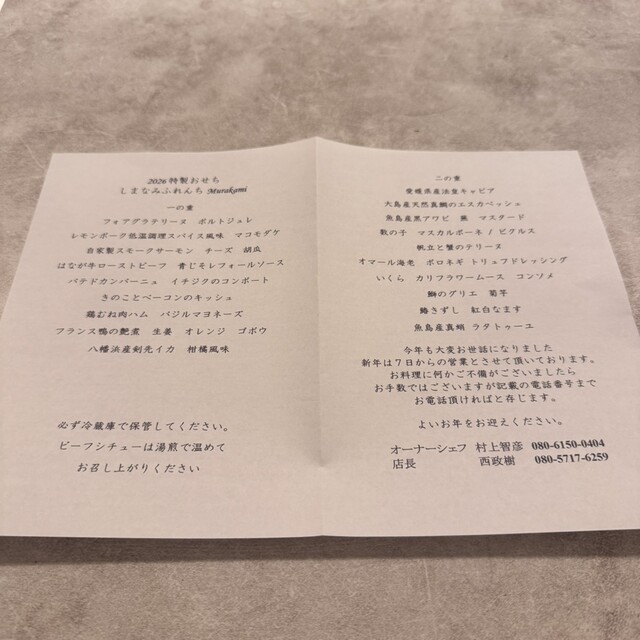 2026特製おせち
しまなみふれんち Murakami
一の重
フォアグラテリーヌ　ポルトジュレ
レモンポーク低温調理スパイス風味　マコモダケ
自家製スモークサーモン　チーズ　胡瓜
はなが牛ローストビーフ　青じそレフォールソース
パテドカンパーニュ　イチジクのコンポート
きのことベーコンのキッシュ
鶏むね肉ハム　バジルマヨネーズ
フランス鴨の艶煮　生姜　オレンジ　ゴボウ
八幡浜産剣先イカ　柑橘風味
必ず冷蔵庫で保管してください。
ビーフシチューは湯煎で温めて
お召し上がりください
二の重
愛媛県産法皇キャビア
大島産天然真鯛のエスカベッシュ
魚島産黒アワビ　蕪　マスタード
数の子　マスカルポーネ / ピクルス
帆立と蟹のテリーヌ
オマール海老　ポロネギ　トリュフドレッシング
いくら　カリフラワームース　コンソメ
鰤のグリエ　菊芋
鰆きずし　紅白なます
魚島産真蛸 ラタトゥーユ
今年も大変お世話になりました
新年は７日からの営業とさせて頂いております。
お料理に何かご不備がございましたら
お手数ではございますが記載の電話番号まで
お電話頂ければと存じます。
よいお年をお迎えください。
オーナーシェフ　村上智彦　080-6150-0404
店長　西政樹　080-5717-6259